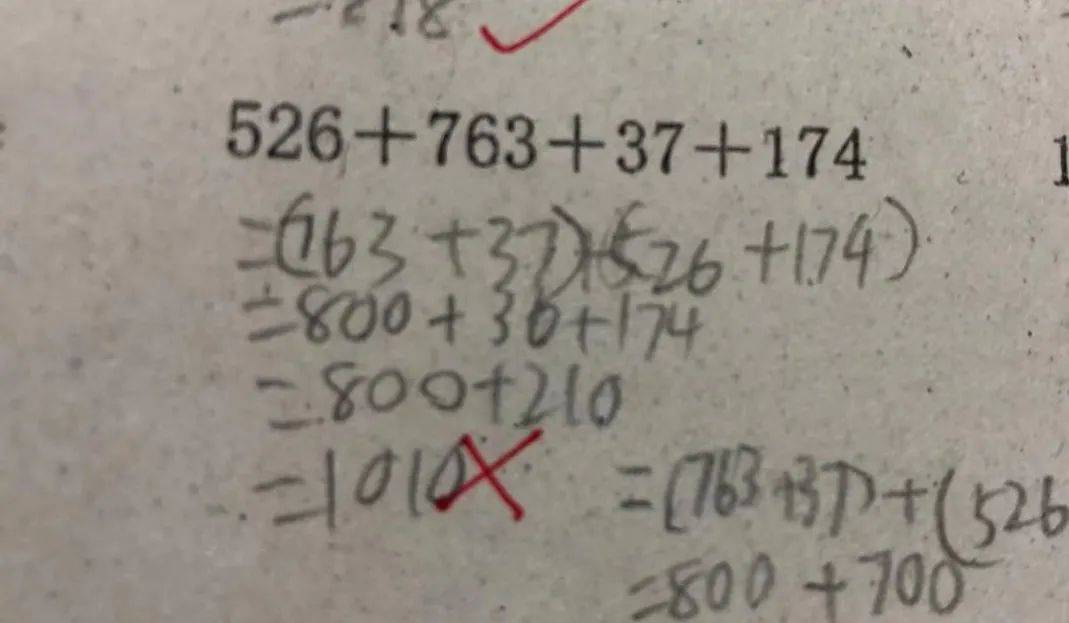 526+763+37+174
=(763+37)+(526+174)
=800+36+174
=800+210
=1010
=(763+37)+(526
=800+700